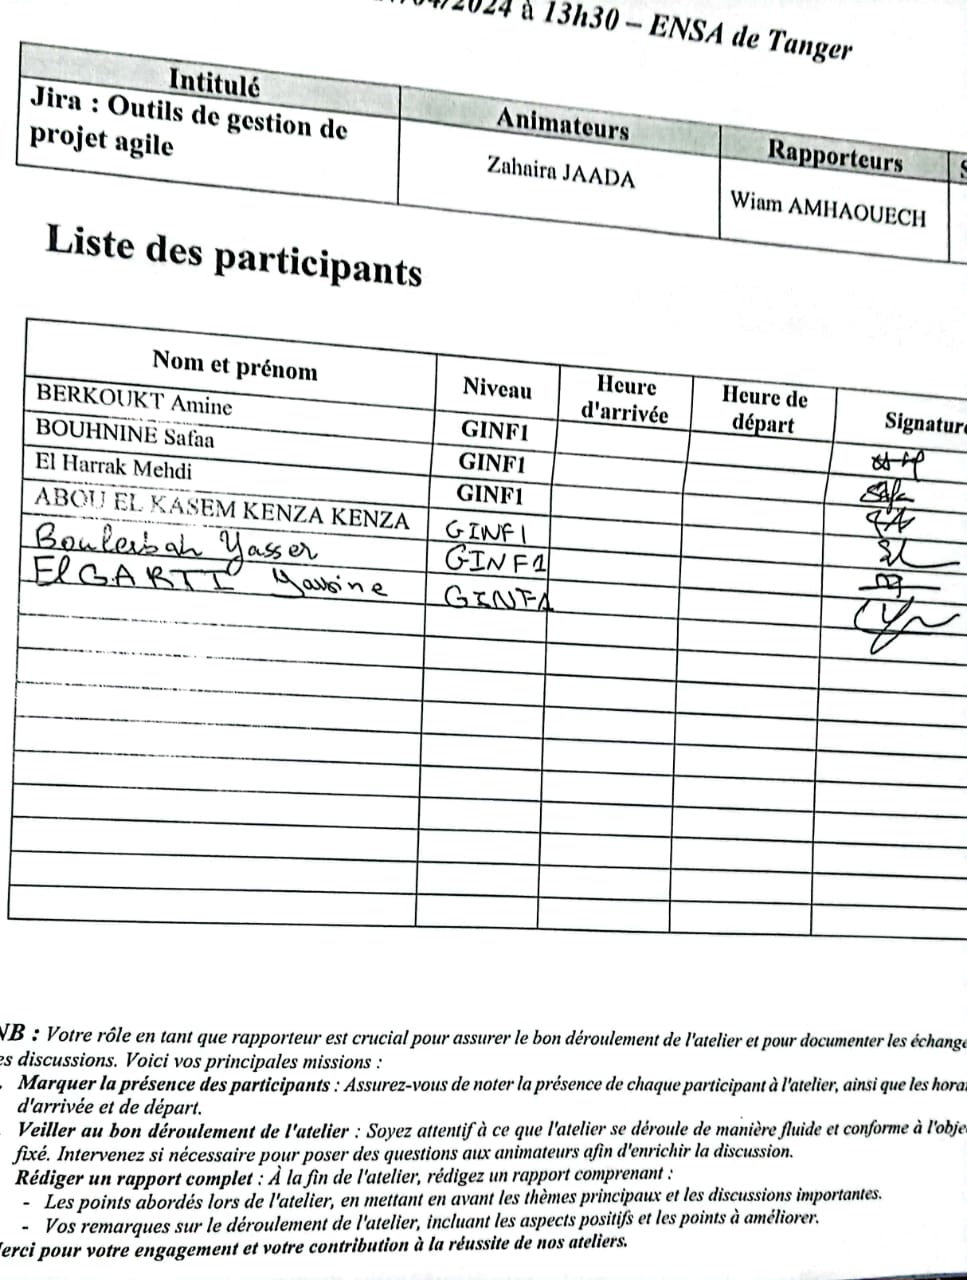 04/2024 à 13h30 – ENSA de Tanger
Intitulé Animateurs Rapporteurs
Jira : Outils de gestion de projet agile Zahaira JAADA Wiam AMHAOUECH
Liste des participants
Nom et prénom Niveau Heure d'arrivée Heure de départ Signature
BERKOUKT Amine GINF1
BOUHNINE Safaa GINF1
El Harrak Mehdi GINF1
ABOU EL KASEM KENZA KENZA GINF1
Boulerbah Yasser GINF1
El GARTI Yassine GINF1
NB : Votre rôle en tant que rapporteur est crucial pour assurer le bon déroulement de l'atelier et pour documenter les échange
es discussions. Voici vos principales missions :
Marquer la présence des participants : Assurez-vous de noter la présence de chaque participant à l'atelier, ainsi que les horai
d'arrivée et de départ.
Veiller au bon déroulement de l'atelier : Soyez attentif à ce que l'atelier se déroule de manière fluide et conforme à l'obje
fixé. Intervenez si nécessaire pour poser des questions aux animateurs afin d'enrichir la discussion.
Rédiger un rapport complet : À la fin de l'atelier, rédigez un rapport comprenant :
- Les points abordés lors de l'atelier, en mettant en avant les thèmes principaux et les discussions importantes.
- Vos remarques sur le déroulement de l'atelier, incluant les aspects positifs et les points à améliorer.
Merci pour votre engagement et votre contribution à la réussite de nos ateliers.